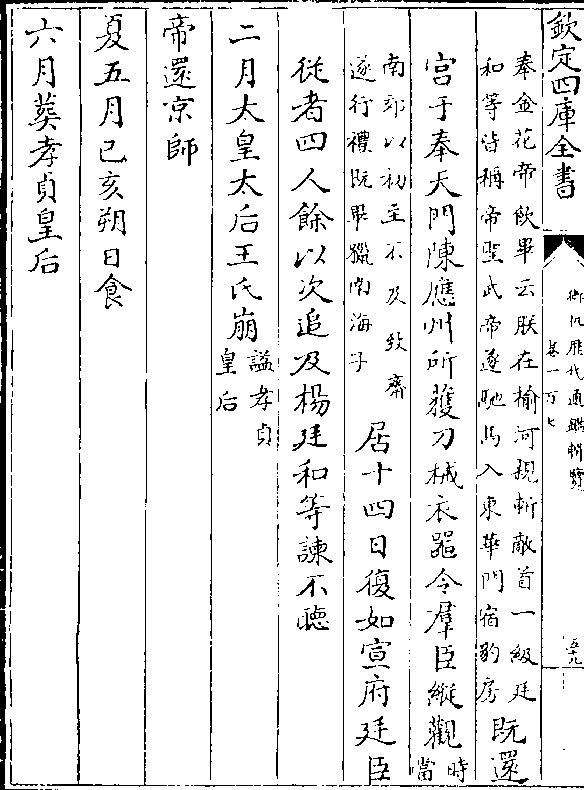 欽定四庫全書
御批歷代通鑑輯覽
卷一百七
五十九
奉金花帝飲畢云朕在榆河親斬敵首一級廷
和等皆稱帝聖武帝遂馳馬入東華門宿豹房
既還
宫于奉天門陳應州所獲刀械衣器令羣臣縱觀
時
當
南郊以初至不及致齋
遂行禮既畢獵南海子
居十四日復如宣府廷臣
從者四人餘以次追及楊廷和等諫不聽
二月太皇太后王氏崩
謚孝貞
皇后
帝還京師
夏五月己亥朔日食
六月葬孝貞皇后